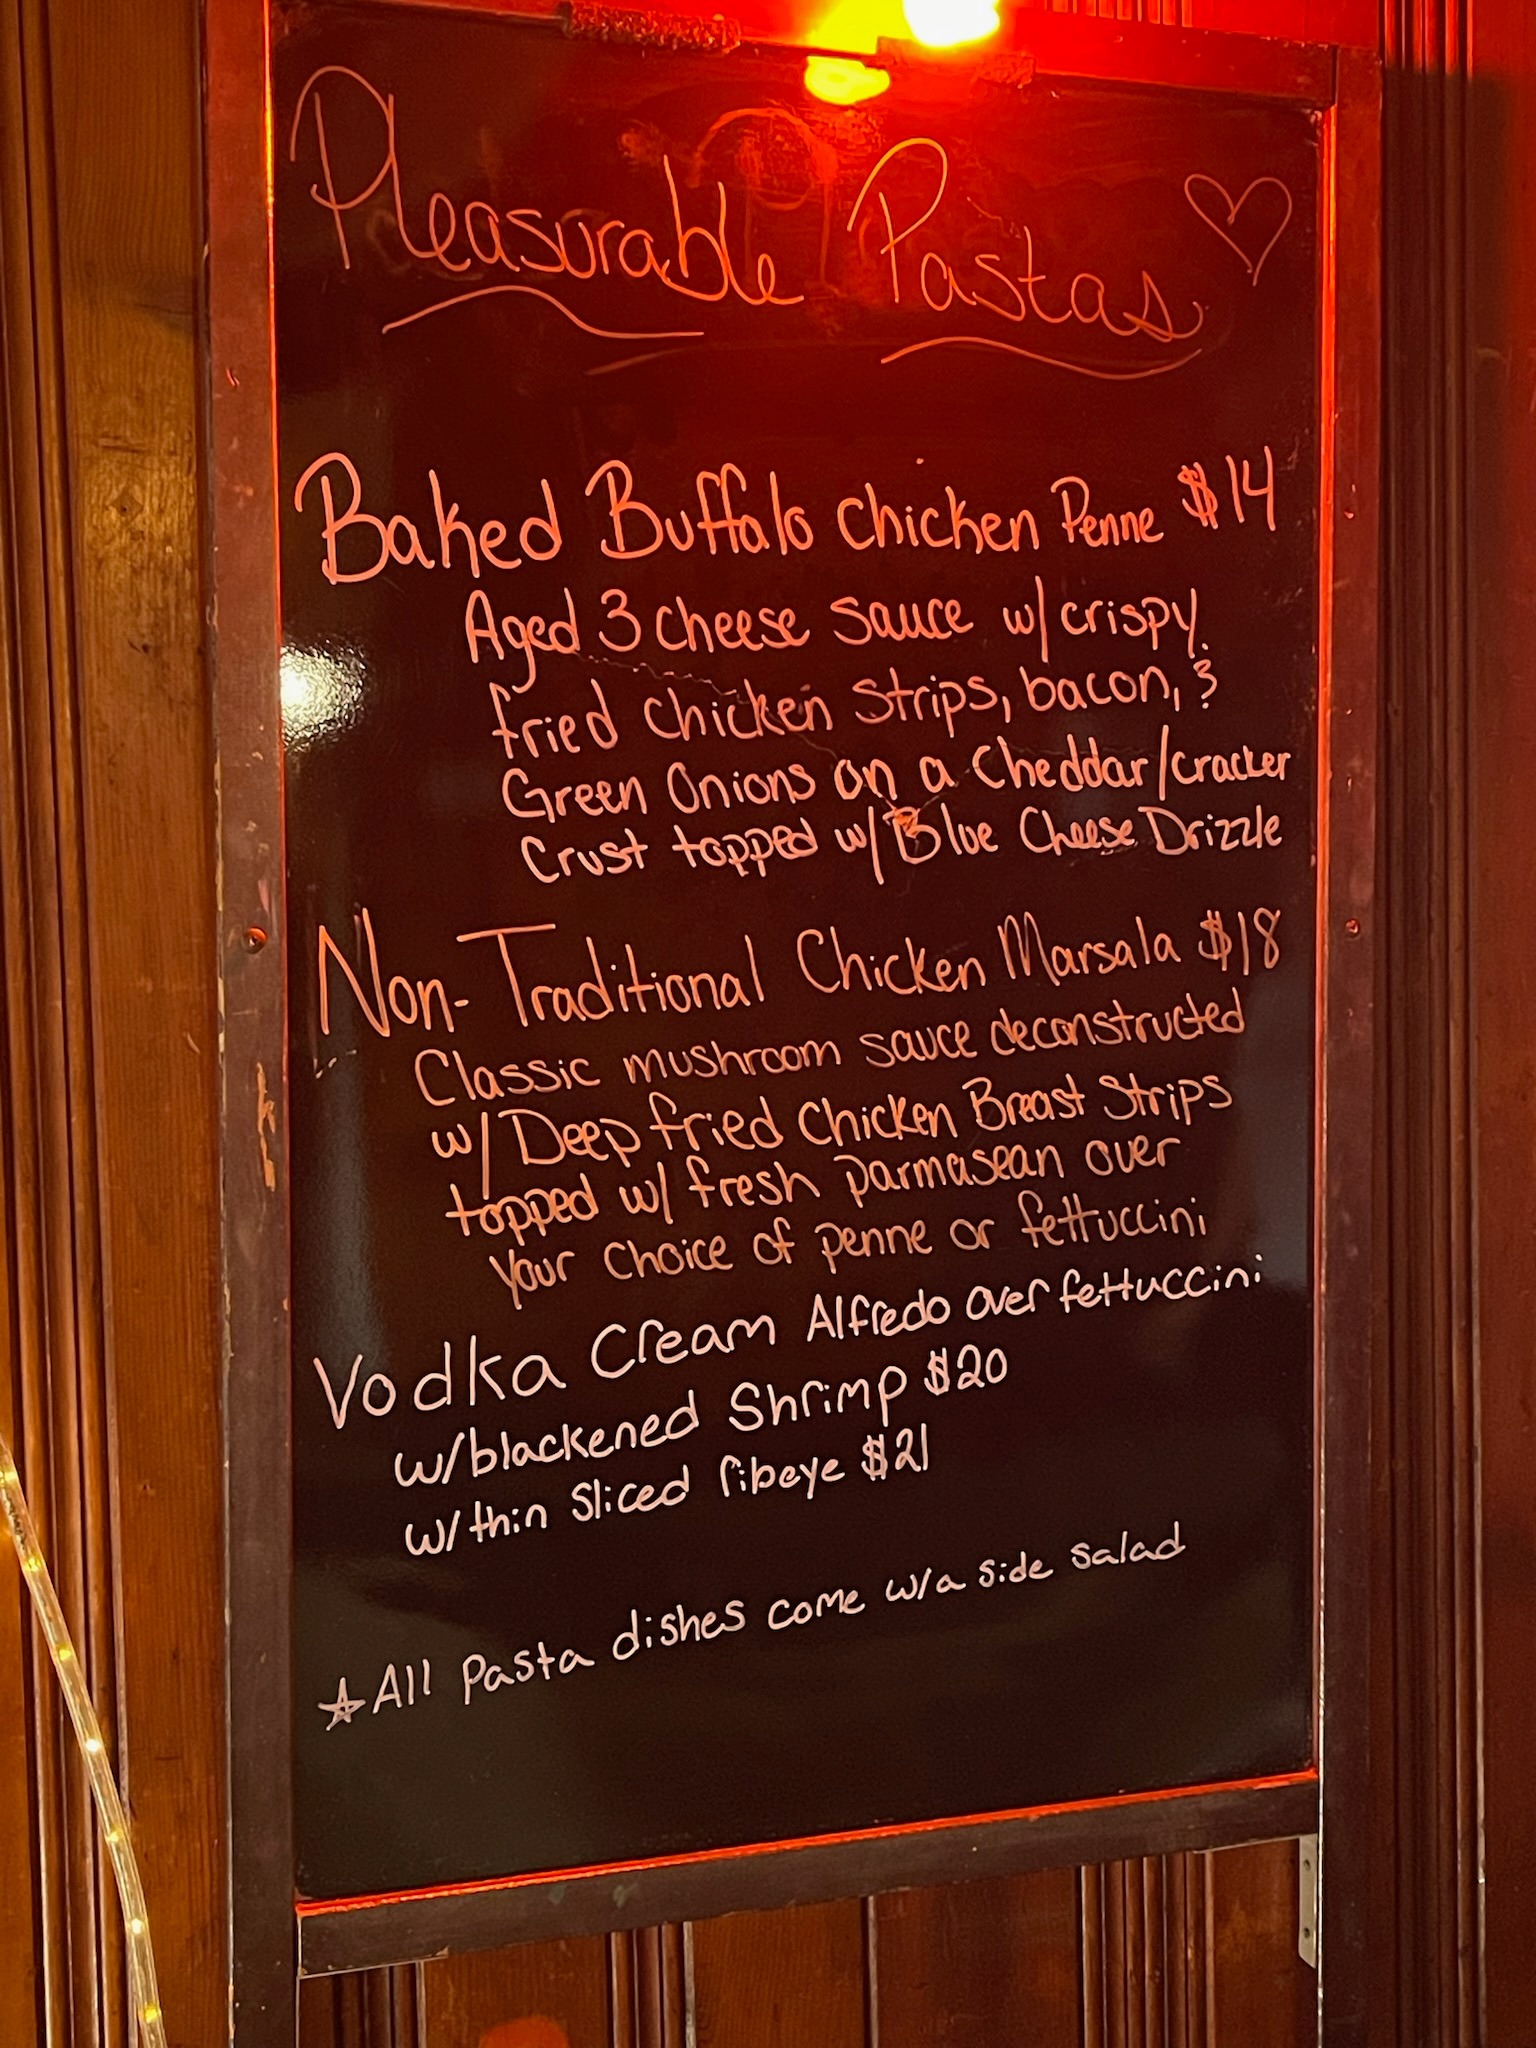 Pleasurable Pastas
Baked Buffalo Chicken Penne $14
Aged 3 cheese sauce w/ crispy
fried chicken strips, bacon, &
Green Onions on a Cheddar/cracker
Crust topped w/ Blue Cheese Drizzle
Non-Traditional Chicken Marsala $18
Classic mushroom sauce deconstructed
w/ Deep fried Chicken Breast Strips
topped w/ fresh parmasean over
your choice of penne or fettuccini
Vodka Cream Alfredo over fettuccini
w/blackened Shrimp $20
w/thin Sliced ribeye $21
☆All pasta dishes come w/a side salad